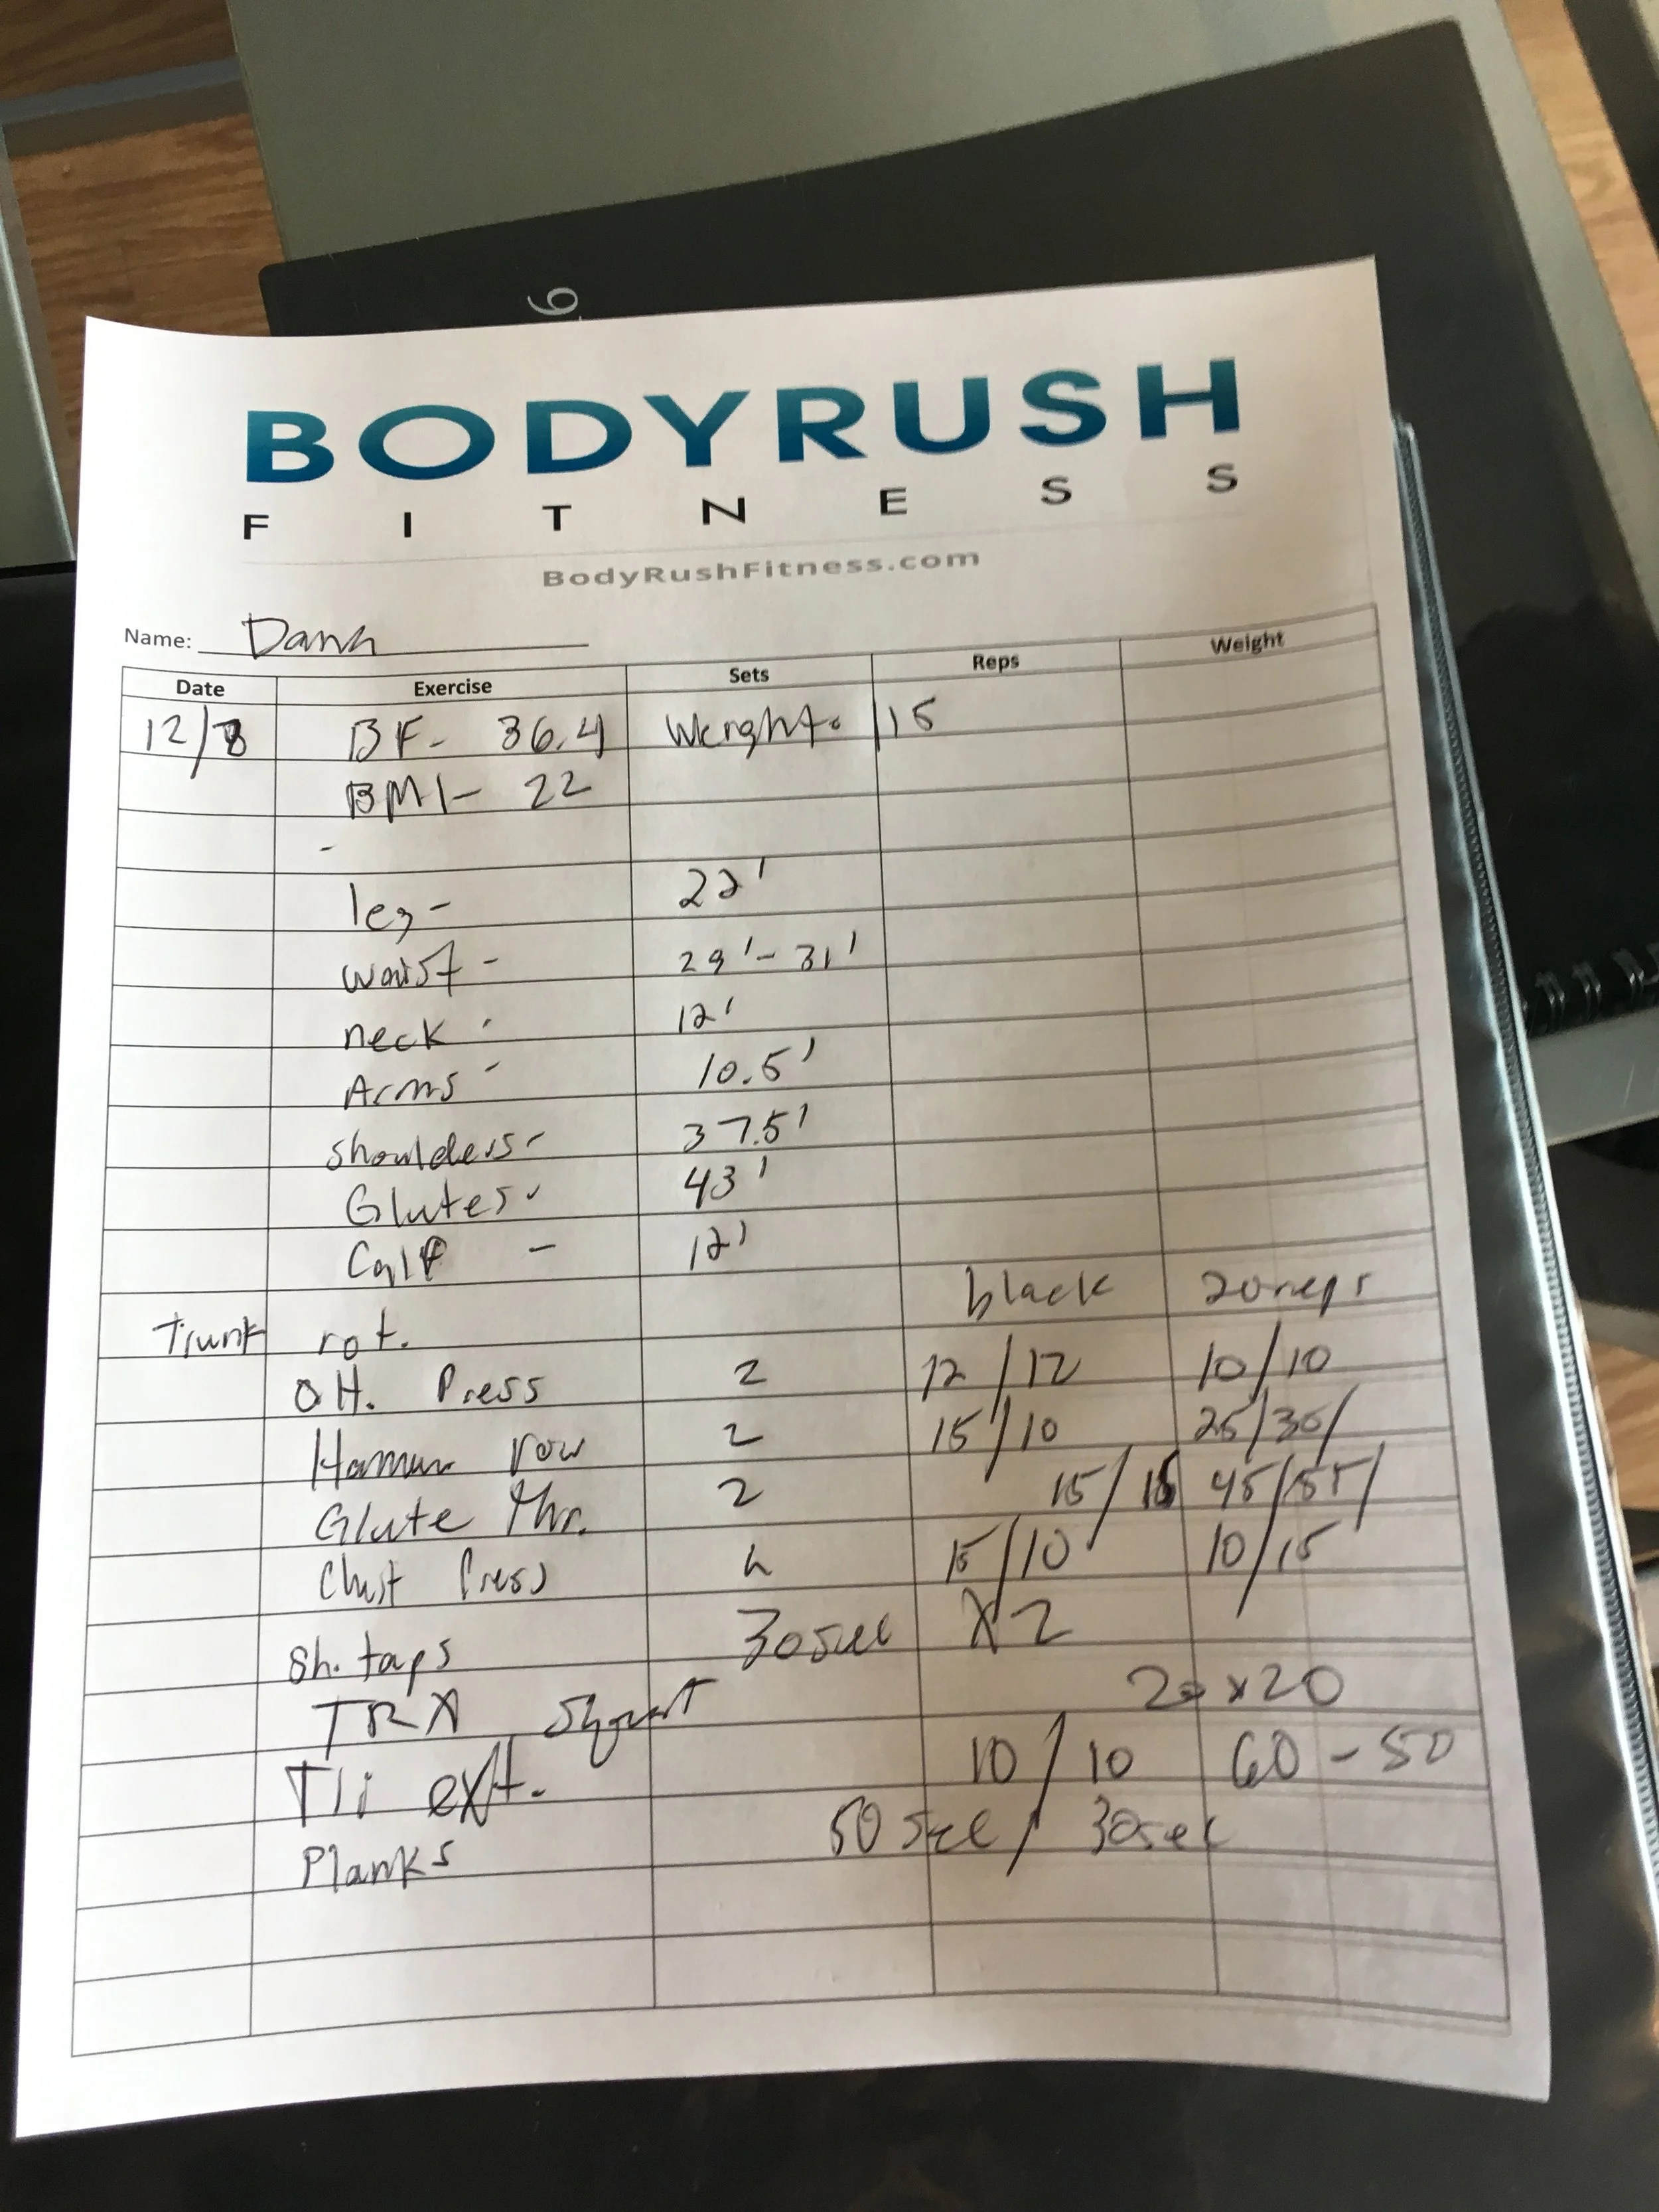 6
BODYRUSH
FITNESS
BodyRushFitness.com
Name: Dana
Date Exercise Sets Reps Weight
12/8 BF- 36.4 Weight- 115
BMI- 22
-
leg- 22'
waist- 29'-31'
neck- 12'
Arms- 10.5'
shoulders- 37.5'
Glutes- 43'
Calf - 12'
Trunk rot. black 20 reps
OH. Press 2 12/12 10/10
Hammer row 2 15/10 25/30/
Glute Thr. 2 15/15 45/55/
Chest Press 2 15/10 10/15
Sh. taps 30sec X2
TRX Squat 20 x20
Tri ext. 10/10 60-50
Planks 50 sec/ 30sec